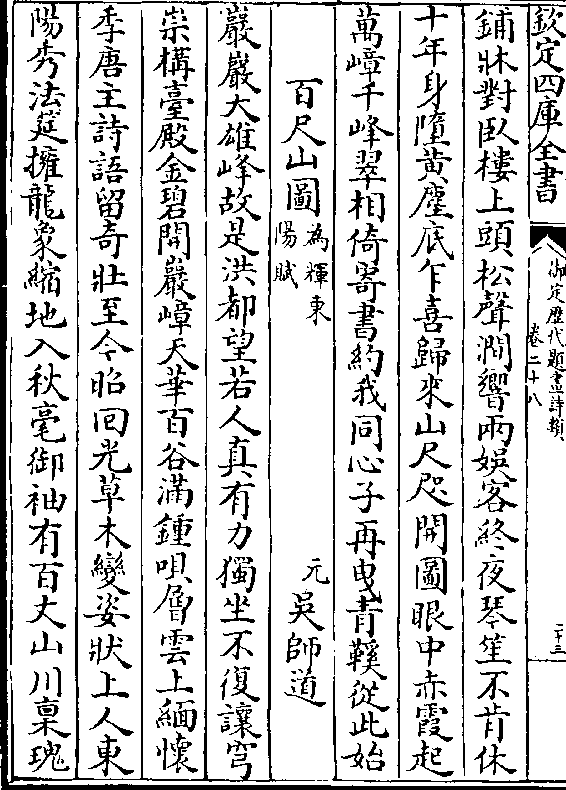 欽定四庫全書
御定歷代題畫詩類
卷二十八
二十三
鋪牀對臥樓上頭松聲澗響兩娛客終夜琴笙不肯休
十年身墮黃塵底乍喜歸來山尺咫開圖眼中赤霞起
萬嶂千峰翠相倚寄書約我同心子再曳青鞵從此始
百尺山圖
為輝東
陽賦
元
吳師道
巖巖大雄峰故是洪都望若人真有力獨坐不復讓穹
崇構臺殿金碧開巖嶂天華百谷滿鍾唄層雲上緬懷
季唐主詩語留奇壯至今昭回光草木變姿狀上人東
陽秀法筵擁龍象縮地入秋毫御袖有百丈山川稟瑰